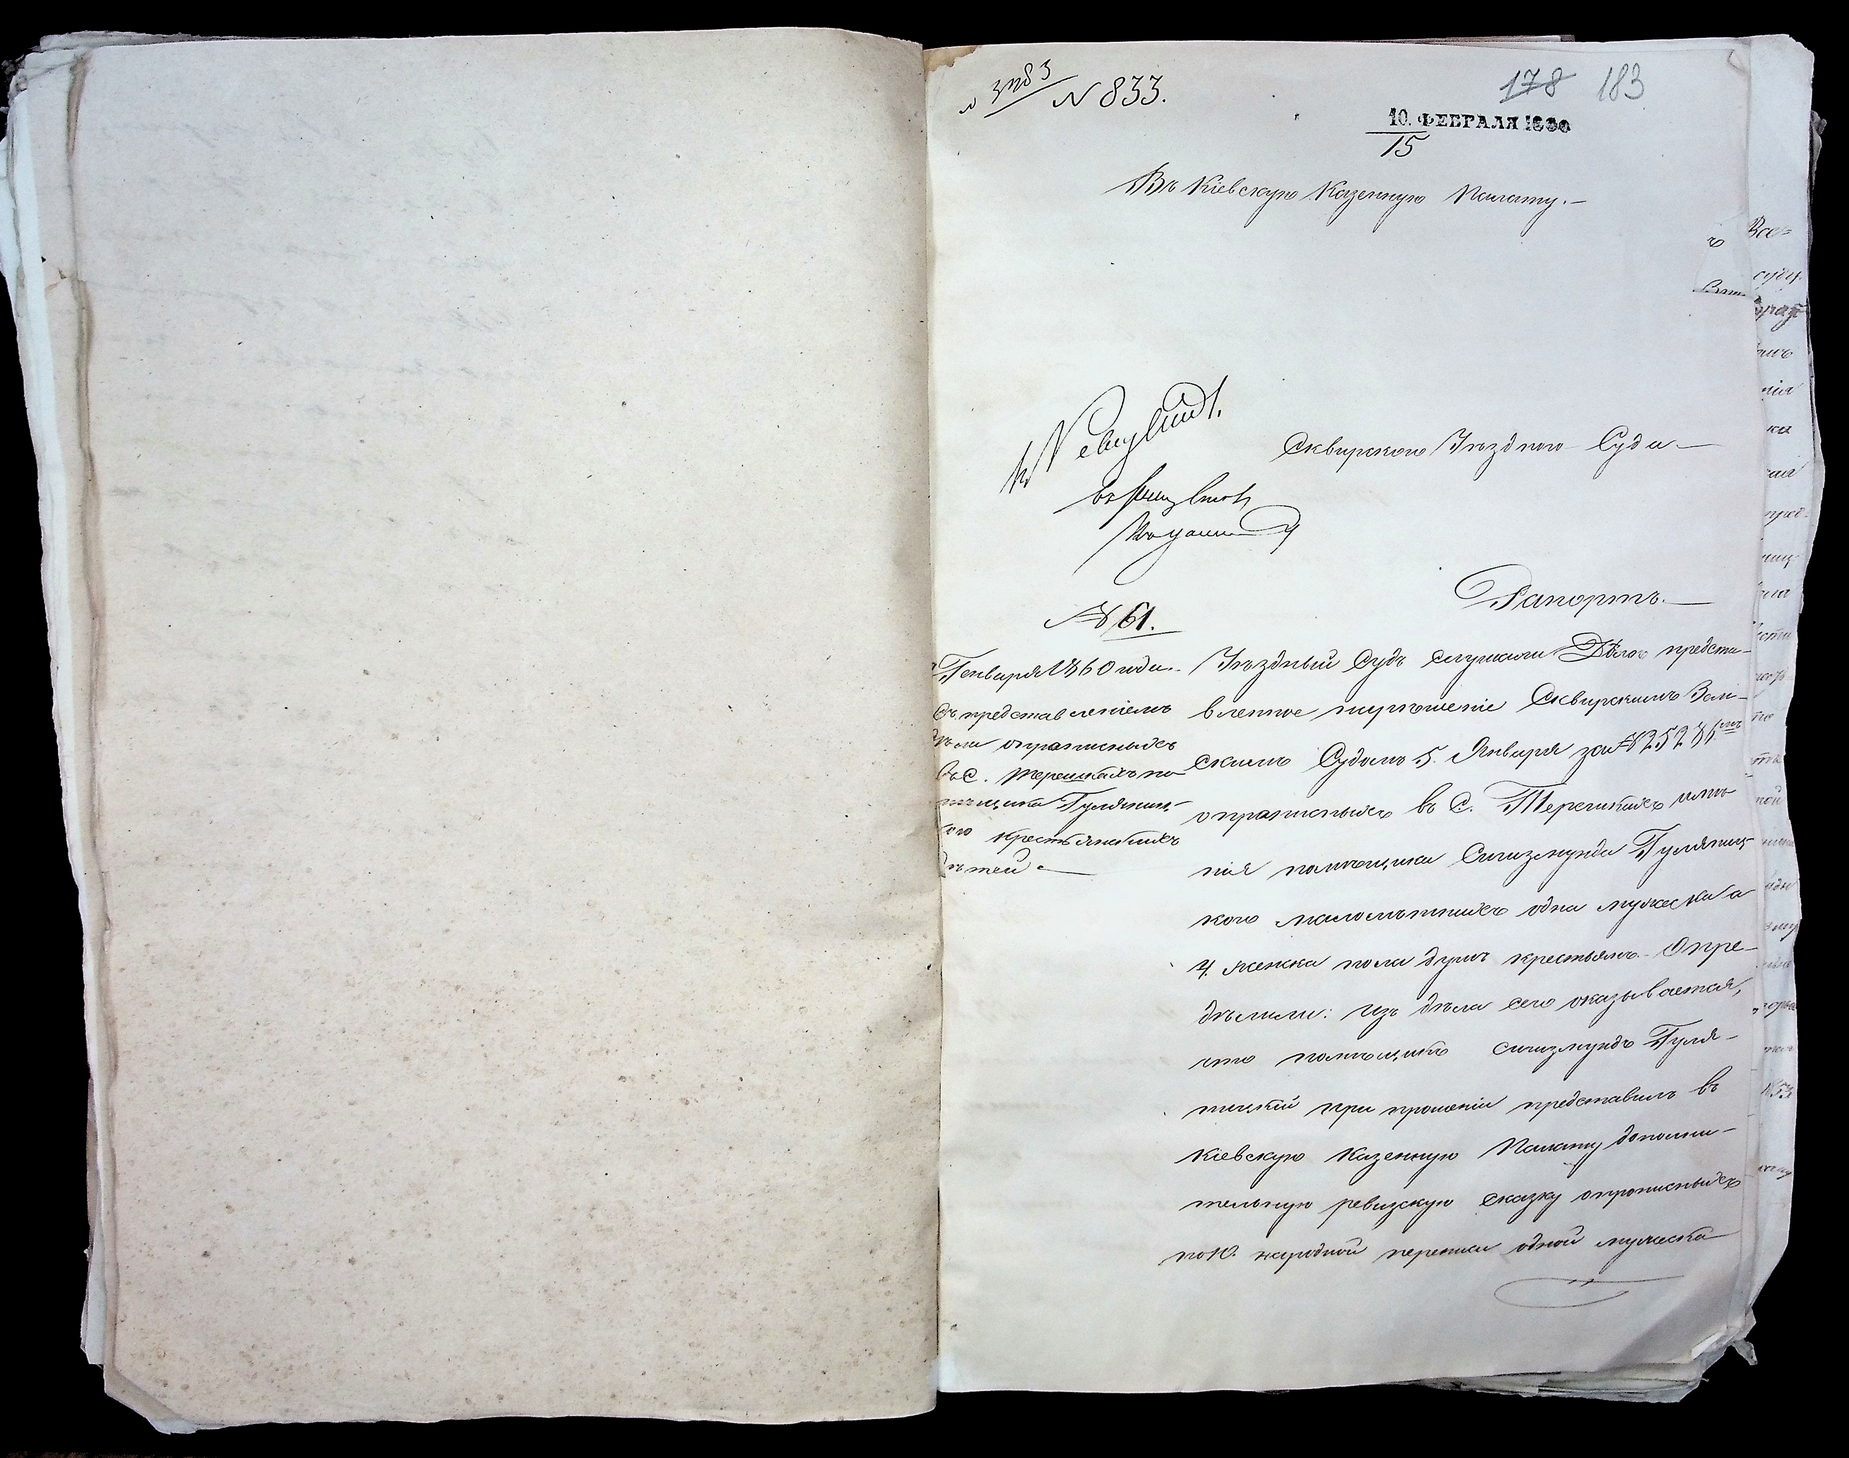 № 833.
178 183
10. ФЕВРАЛЯ 1860
15
Въ Кіевскую Казенную Палату.
Сквирского Уѣздного Суда
Рапортъ.
№ 61.
Генваря 1860 года.
съ представленіемъ
дѣла опрописныхъ
въ с. Терешкахъ по
мѣщика Гуляниц
кого крестьянскихъ
дѣтей
Уѣздный Судъ слушали Дѣло предста-
вленное Сквирскимъ Зем-
скимъ Судомъ 5. Января за № 25286
опрописныхъ въ С. Терешкахъ имѣ
нія помѣщика Сигизмунда Гуляниц
кого малолѣтнихъ одна мужеска а
4. женска пола душъ крестьянъ. Опре-
дѣлили: изъ дѣла сего оказывается,
что помѣщикъ Сигизмундъ Гуля-
ницкій при прошеніи представилъ въ
Кіевскую Казенную Палату дополни-
тельную ревизскую сказку опрописныхъ
по 10. народной переписи одной мужеска